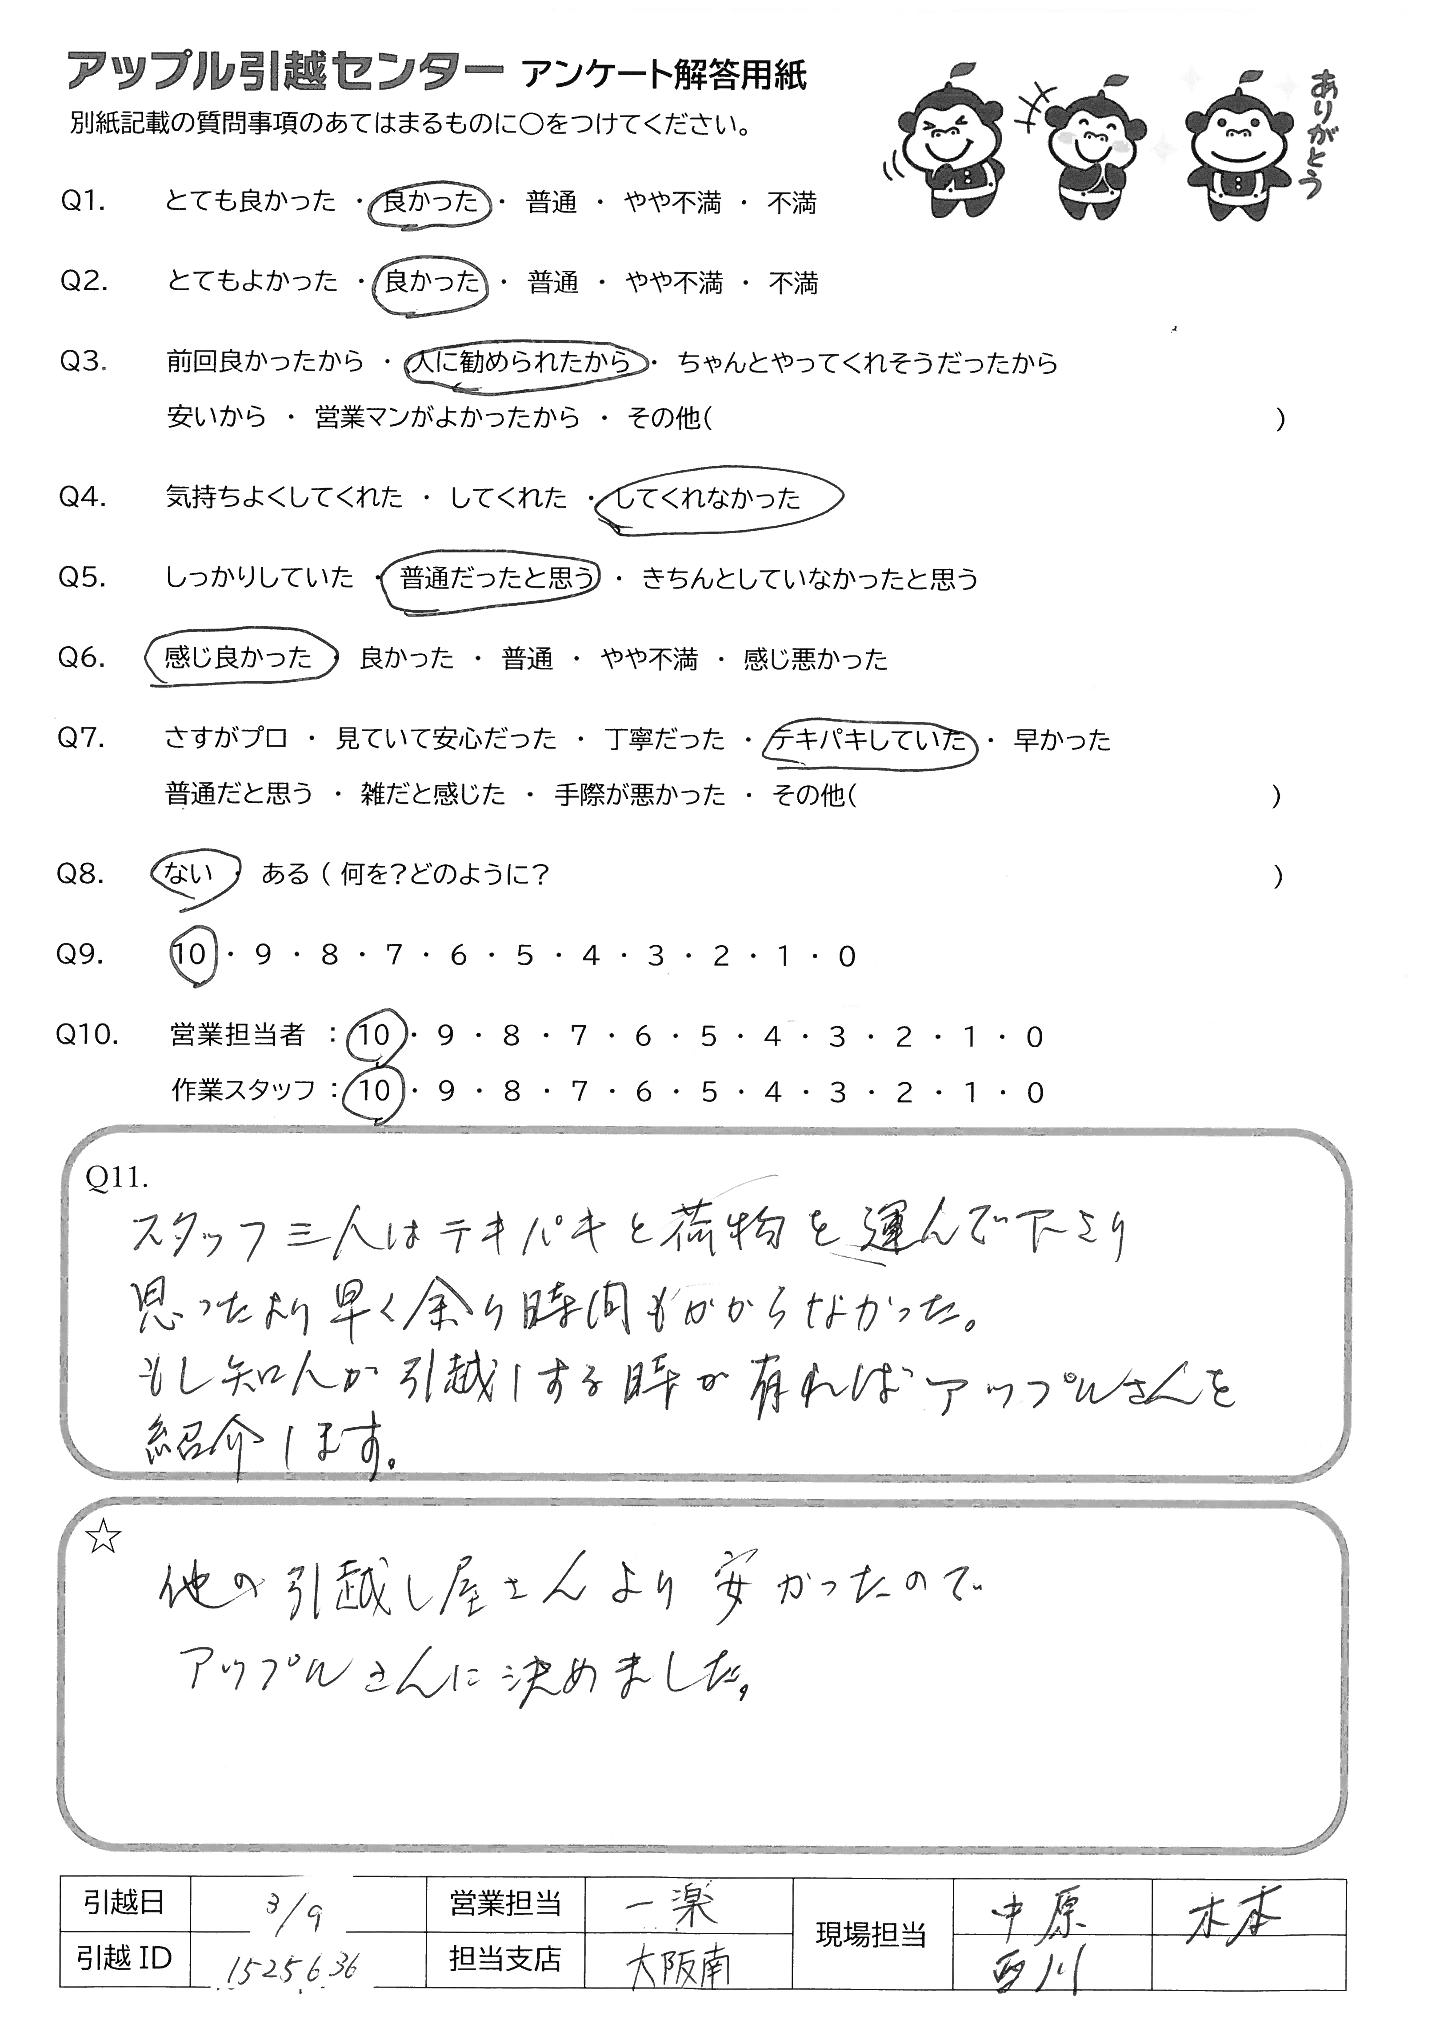 アップル引越センター アンケート解答用紙
別紙記載の質問事項のあてはまるものに○をつけてください。
ありがとう
Q1. とても良かった ・ 良かった ・ 普通 ・ やや不満 ・ 不満
Q2. とてもよかった ・ 良かった ・ 普通 ・ やや不満 ・ 不満
Q3. 前回良かったから ・ 人に勧められたから ・ ちゃんとやってくれそうだったから
安いから ・ 営業マンがよかったから ・ その他( )
Q4. 気持ちよくしてくれた ・ してくれた ・ してくれなかった
Q5. しっかりしていた ・ 普通だったと思う ・ きちんとしていなかったと思う
Q6. 感じ良かった ・ 良かった ・ 普通 ・ やや不満 ・ 感じ悪かった
Q7. さすがプロ ・ 見ていて安心だった ・ 丁寧だった ・ テキパキしていた ・ 早かった
普通だと思う ・ 雑だと感じた ・ 手際が悪かった ・ その他( )
Q8. ない ・ ある ( 何を?どのように? )
Q9. 10 ・ 9 ・ 8 ・ 7 ・ 6 ・ 5 ・ 4 ・ 3 ・ 2 ・ 1 ・ 0
Q10. 営業担当者 : 10 ・ 9 ・ 8 ・ 7 ・ 6 ・ 5 ・ 4 ・ 3 ・ 2 ・ 1 ・ 0
作業スタッフ : 10 ・ 9 ・ 8 ・ 7 ・ 6 ・ 5 ・ 4 ・ 3 ・ 2 ・ 1 ・ 0
Q11.
スタッフ三人はテキパキと荷物を運んで下さり
思ったより早く余り時間もかからなかった。
もし知人が引越しする時が有ればアップルさんを
紹介します。
☆
他の引越し屋さんより安かったので
アップルさんに決めました。
引越日 3/9 営業担当 一楽 現場担当 中原 木本
引越ID 1525636 担当支店 大阪南 西川